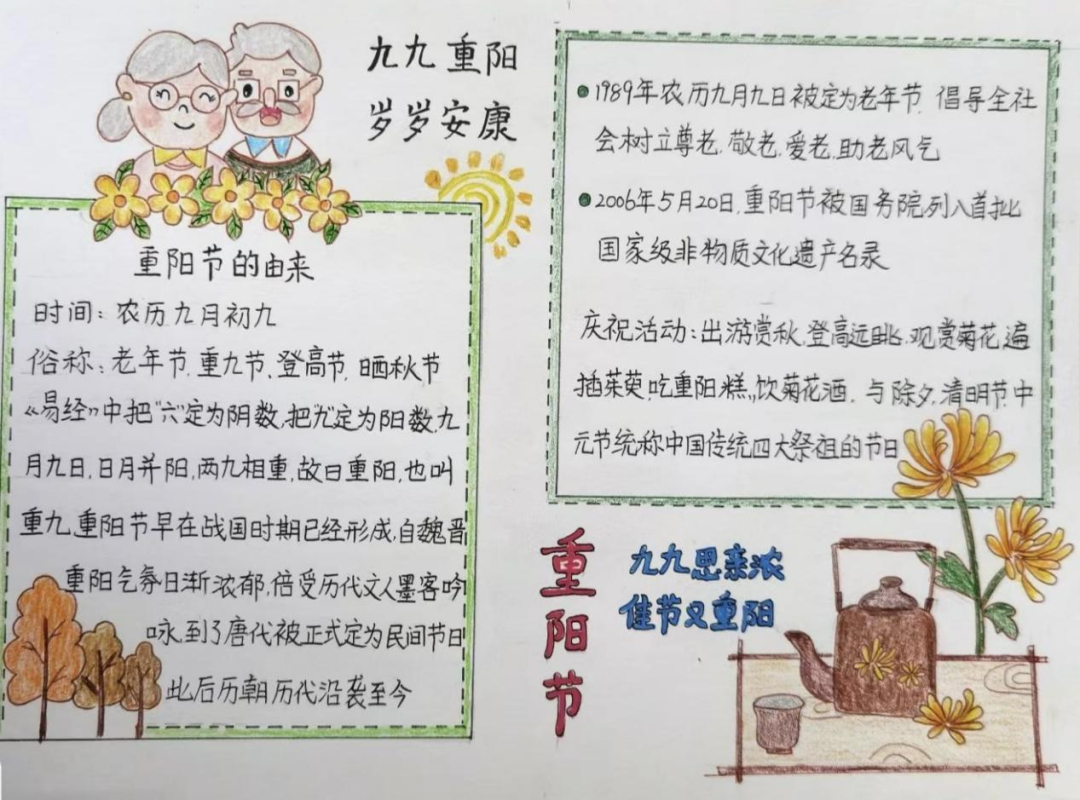 九九重阳
岁岁安康
重阳节的由来
时间：农历九月初九
俗称：老年节、重九节、登高节、晒秋节
《易经》中把"六"定为阴数，把"九"定为阳数，九
月九日，日月并阳，两九相重，故曰重阳，也叫
重九，重阳节早在战国时期已经形成，自魏晋
重阳气氛日渐浓郁，倍受历代文人墨客吟
咏，到了唐代被正式定为民间节日
此后历朝历代沿袭至今
1989年农历九月九日被定为老年节，倡导全社
会树立尊老、敬老、爱老、助老风气
2006年5月20日，重阳节被国务院列入首批
国家级非物质文化遗产名录
庆祝活动：出游赏秋、登高远眺、观赏菊花、遍
插茱萸、吃重阳糕、饮菊花酒。与除夕、清明节中
元节统称中国传统四大祭祖的节日
重阳节
九九思亲浓
佳节又重阳